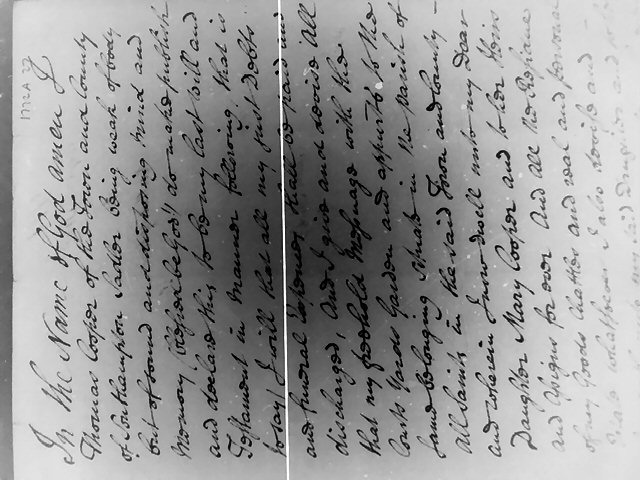 1772 A 27
In the Name of God amen I
Thomas Cooper of the Town and County
of Southampton Sadler being weak of body
but of sound and disposing mind and
Memory (blessed be God) do make publish
and declare this to be my last will and
Testament in manner following that is
to say I will that all my just Debts
and funeral Expences shall be paid and
discharged And I give and devise All
that my freehold Messuage with the
Courts Yards Garden and appurts to the
same belonging situate in the Parish of
All Saints in the said Town and County
and wherein I now dwell unto my Dear
Daughter Mary Cooper and to her Heirs
and Assigns for ever And all the Residue
of my Goods Chattles and real and personal
Estate whatsoever I also devise and
my said Daughter and to